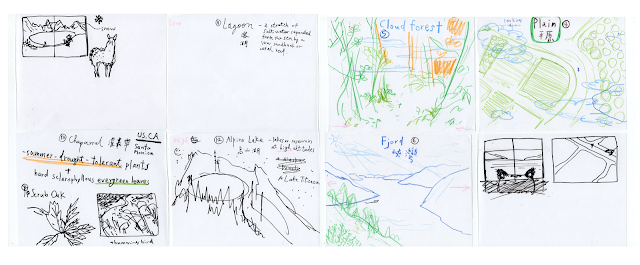 snow
Lagoon - a stretch of
salt water separated
from the sea by a
low sandbank or
coral reef
Cloud forest
5
Looking
down
Plain
平原
US.CA
Santa
Monica
Chaparral
-summer-drought-tolerant plants
+
hard sclerophyllous evergreen leaves
Scrub Oak
hummingbird
Alpine Lake - lakes or reservoirs
at high altitudes
Lake Titicaca
Fjord